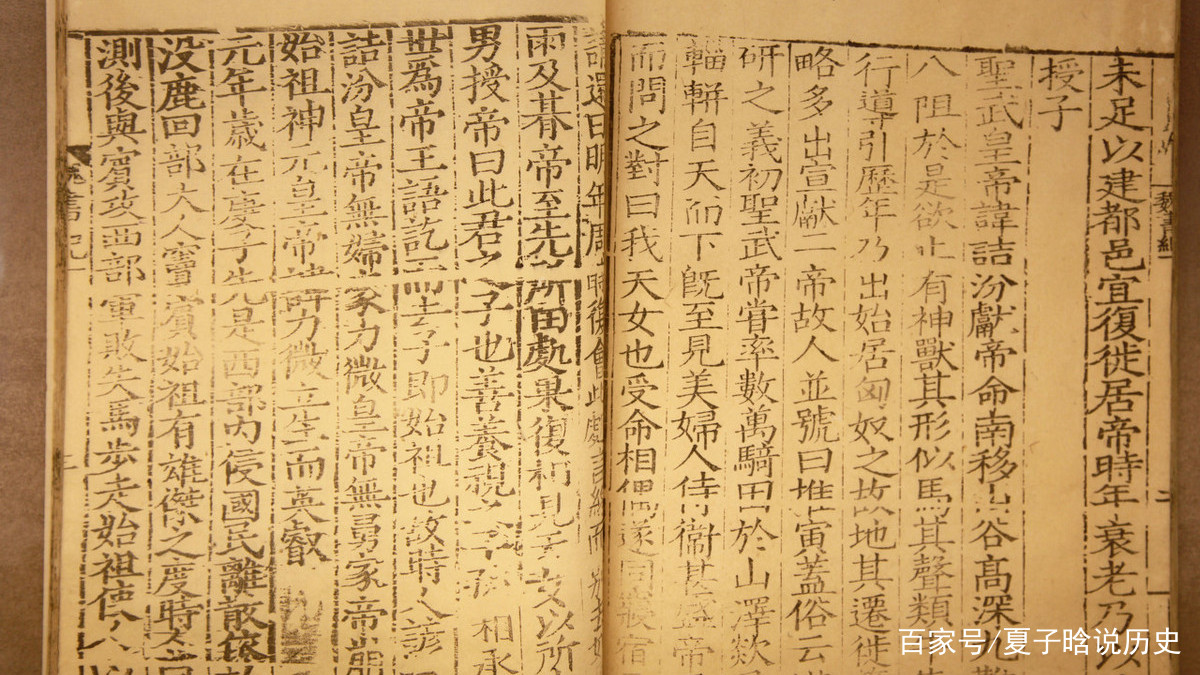 未足以建都邑宜復徙居帝時年衰老乃以
授子
聖武皇帝諱詰汾獻帝命南移山谷高深九難
八阻於是欲止有神獸其形似馬其聲類牛
行導引歷年乃出始居匈奴之故地其遷徙
略多出宣獻二帝故人並號曰推寅蓋俗云
研之義初聖武帝嘗率數萬騎田於山澤欻
輜軿自天而下既至見美婦人侍衞甚盛帝
而問之對曰我天女也受命相偶遂同寢宿
請還曰明年周時復會此處言終而
雨及朞帝至先所田處果復相見天女以所
男授帝曰此君之子也善養視之子孫相承
世爲帝王語訖而去子即始祖也故時人諺
詰汾皇帝無婦家力微皇帝無舅家帝崩
始祖神元皇帝諱力微立生而英叡
元年歲在庚子先是西部內侵國民離散依
没鹿回部大人竇賓始祖有雄傑之度時
測後與賓攻西部軍敗失馬步走始祖使人以
魏書紀一
魏書紀一
二
百家号/夏子晗说历史